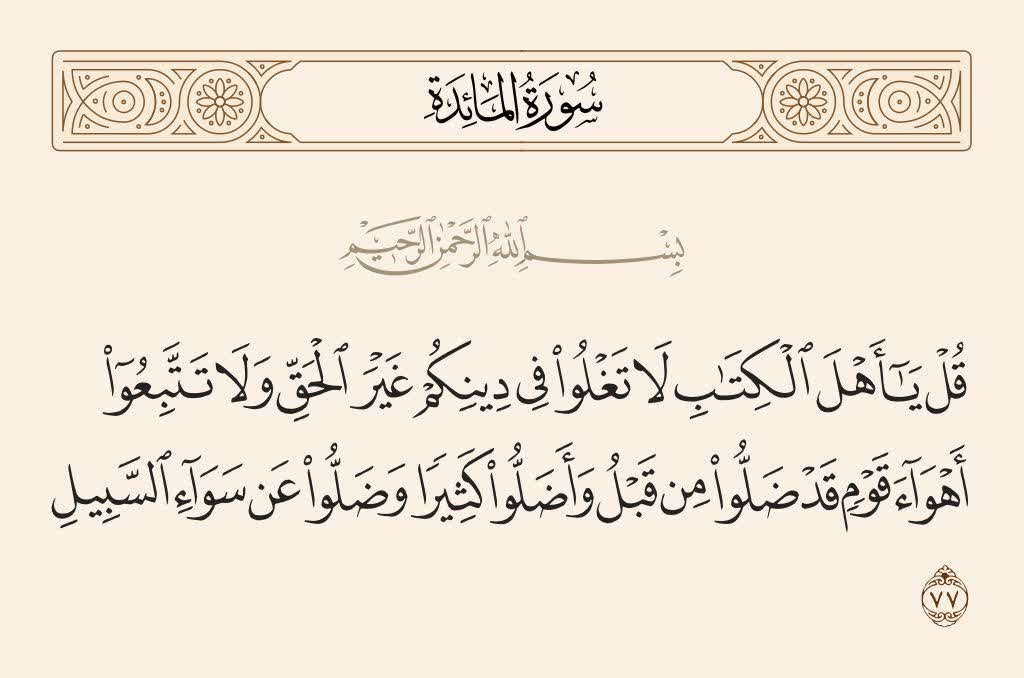 سُورَةُ المَائِدَةِ
بِسْمِ ٱللَّهِ ٱلرَّحْمَٰنِ ٱلرَّحِيمِ
قُلْ يَـٰٓأَهْلَ ٱلْكِتَـٰبِ لَا تَغْلُوا۟ فِى دِينِكُمْ غَيْرَ ٱلْحَقِّ وَلَا تَتَّبِعُوٓا۟
أَهْوَآءَ قَوْمٍ قَدْ ضَلُّوا۟ مِن قَبْلُ وَأَضَلُّوا۟ كَثِيرًا وَضَلُّوا۟ عَن سَوَآءِ ٱلسَّبِيلِ
٧٧